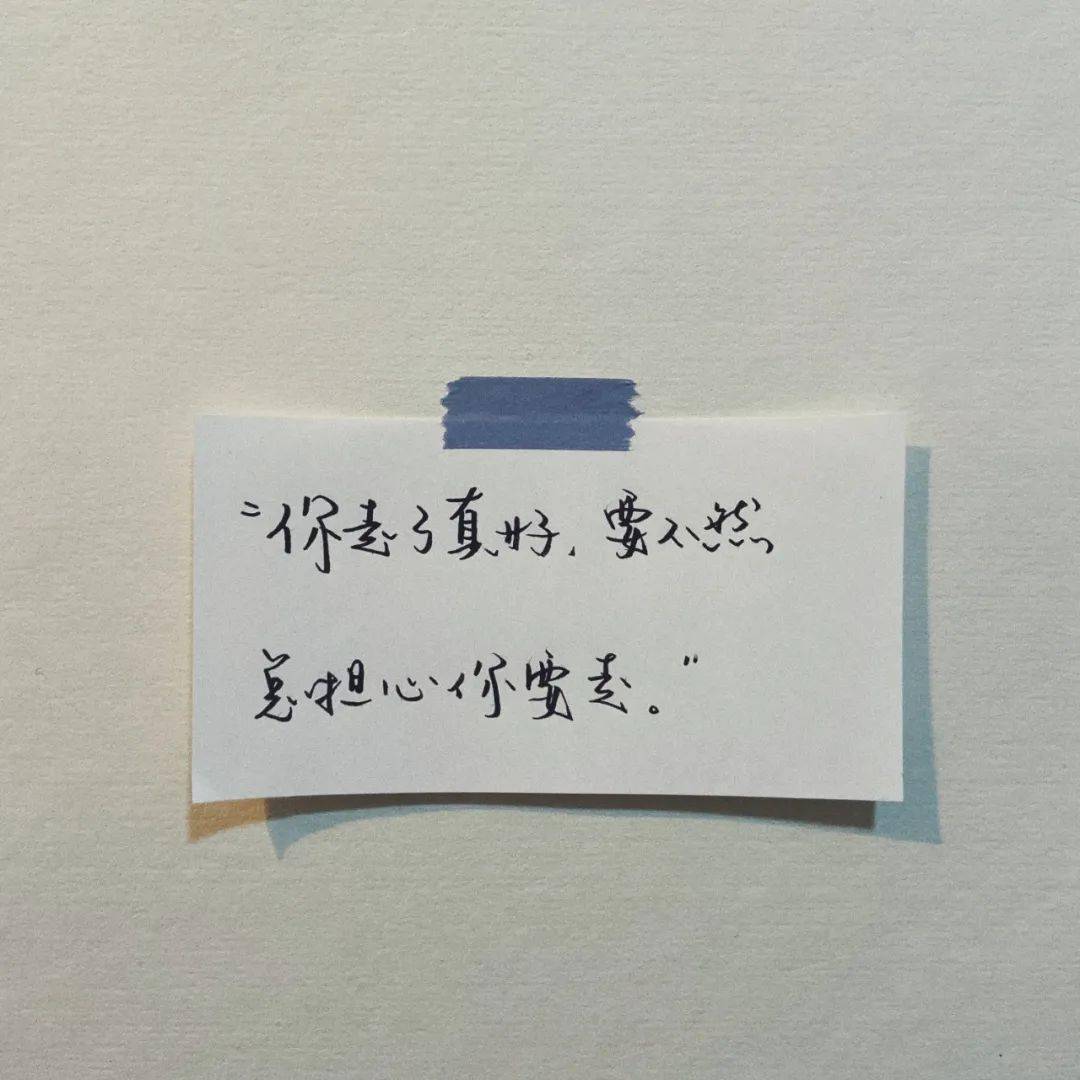 “你走了真好，要不然
总担心你要走。”